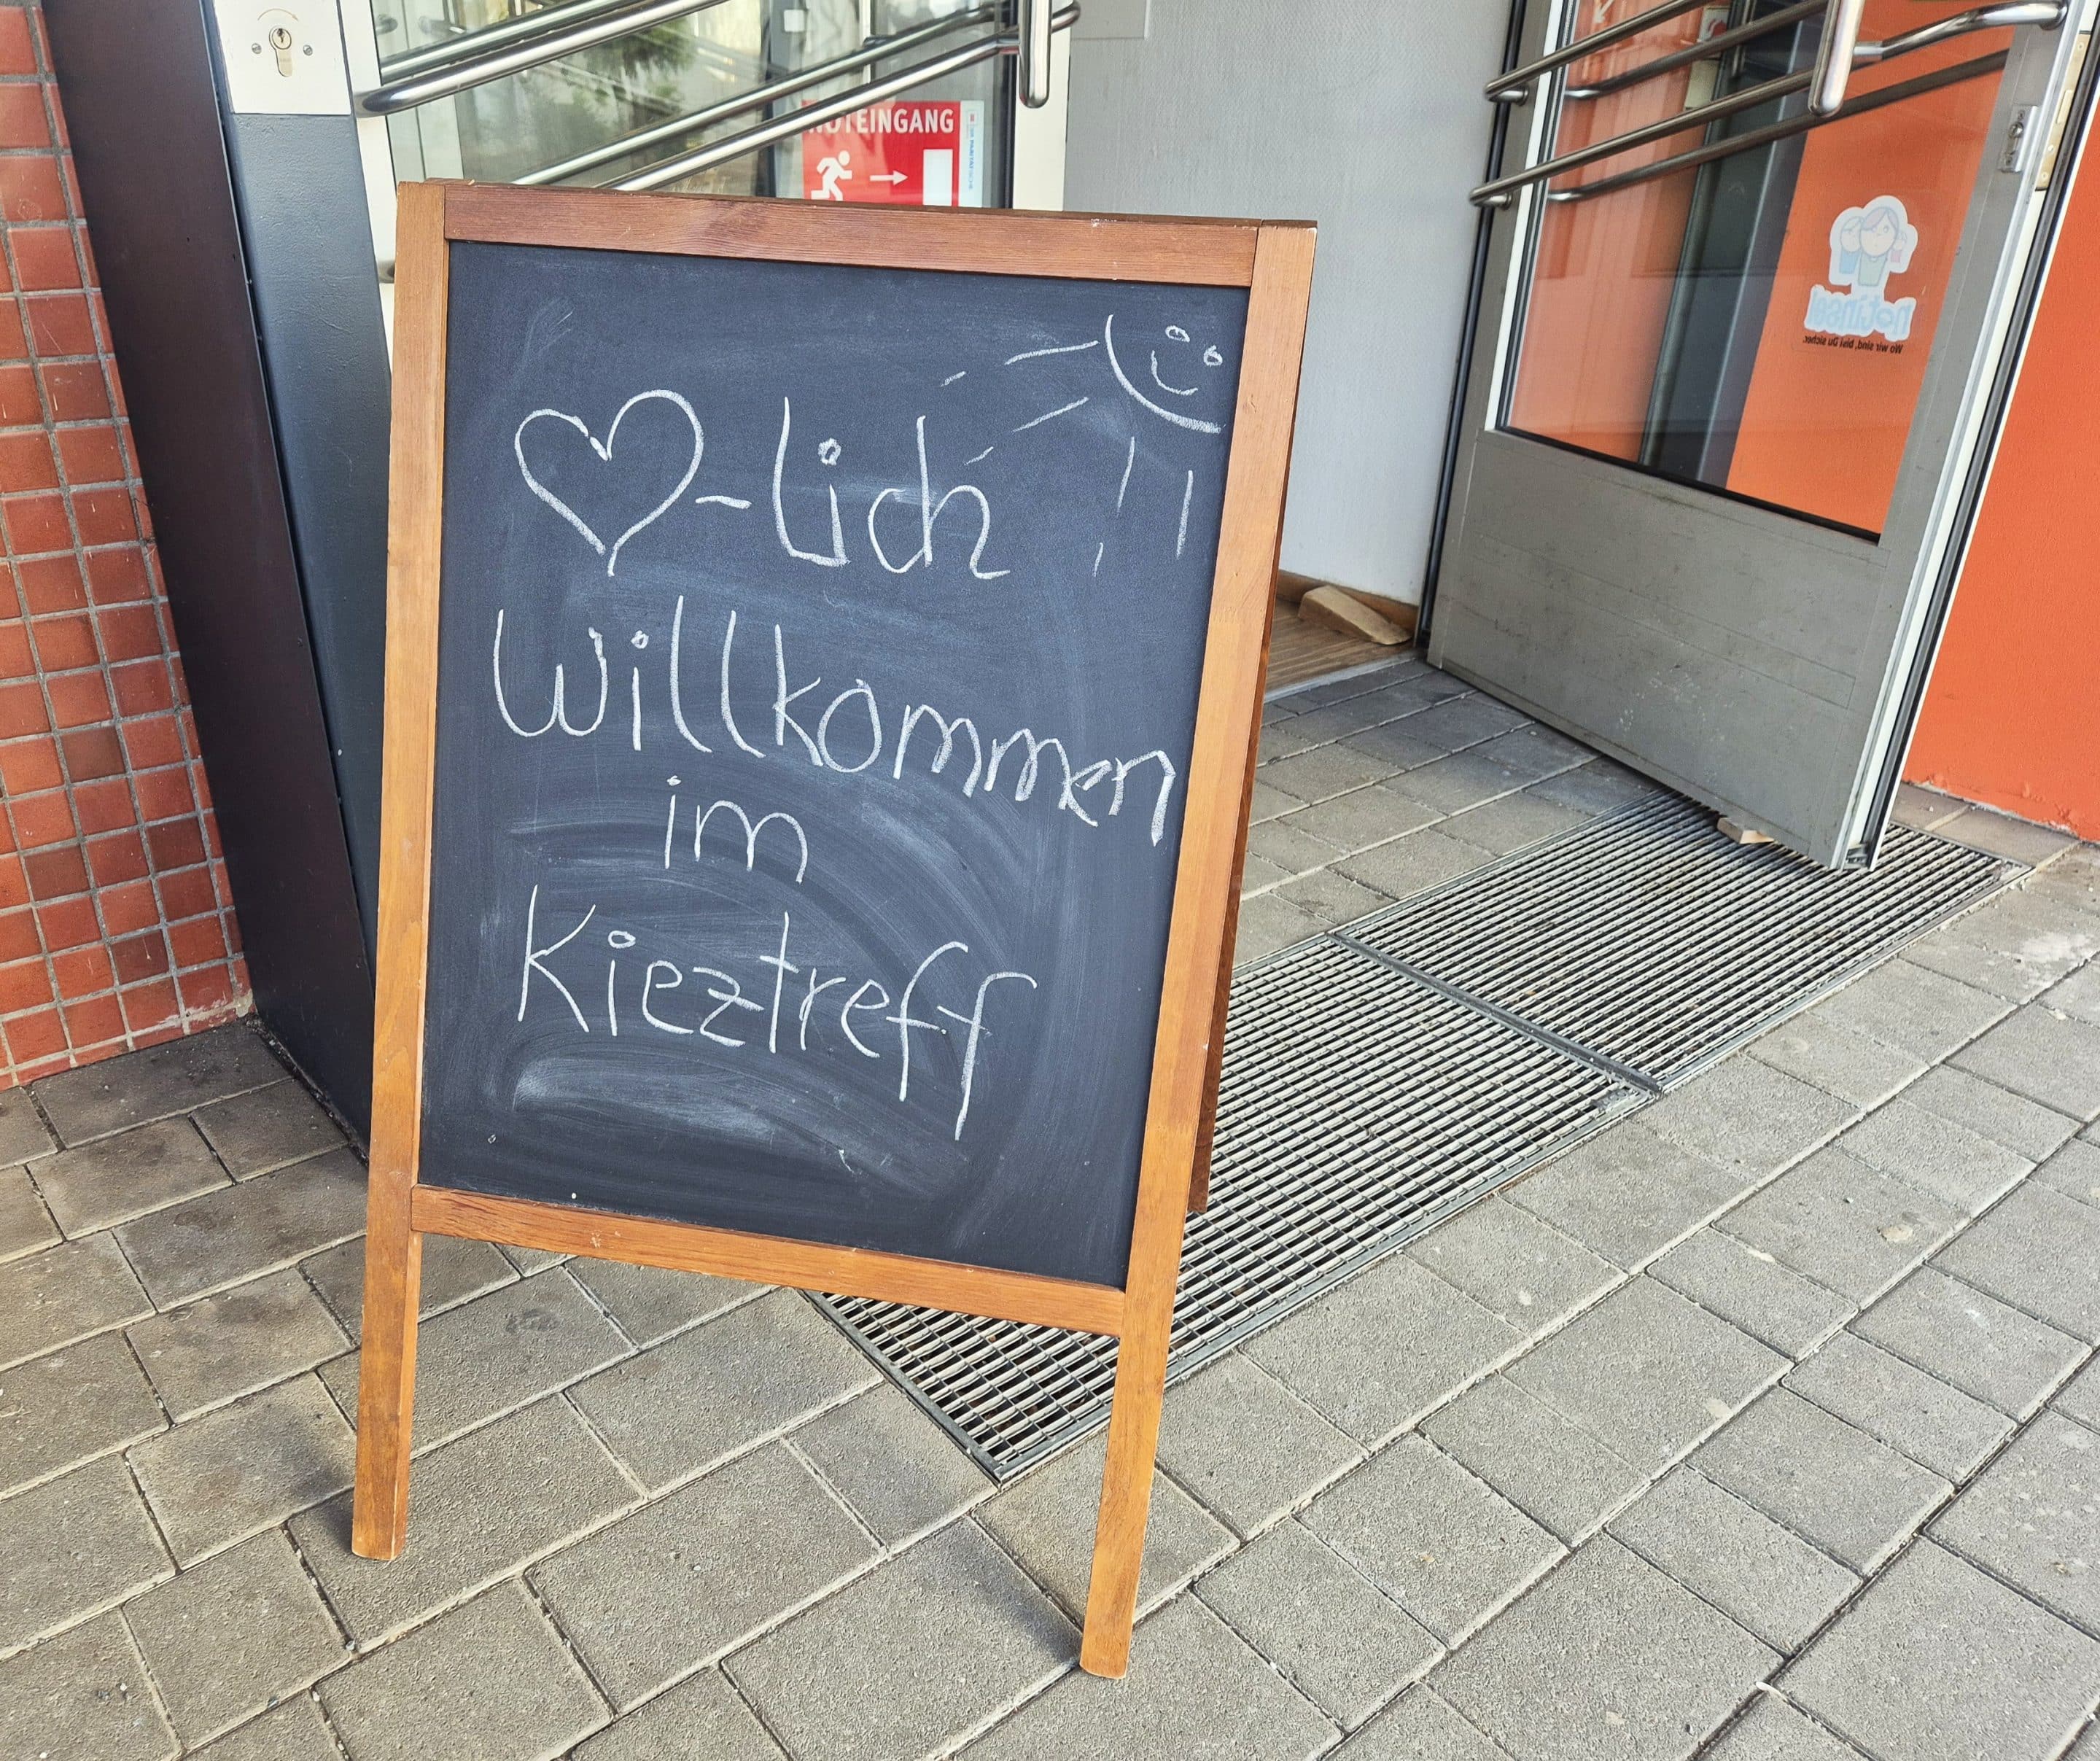 NOTEINGANG
♡-lich
Willkommen
im
Kieztreff
notinsel
Wo wir sind, bist Du sicher.